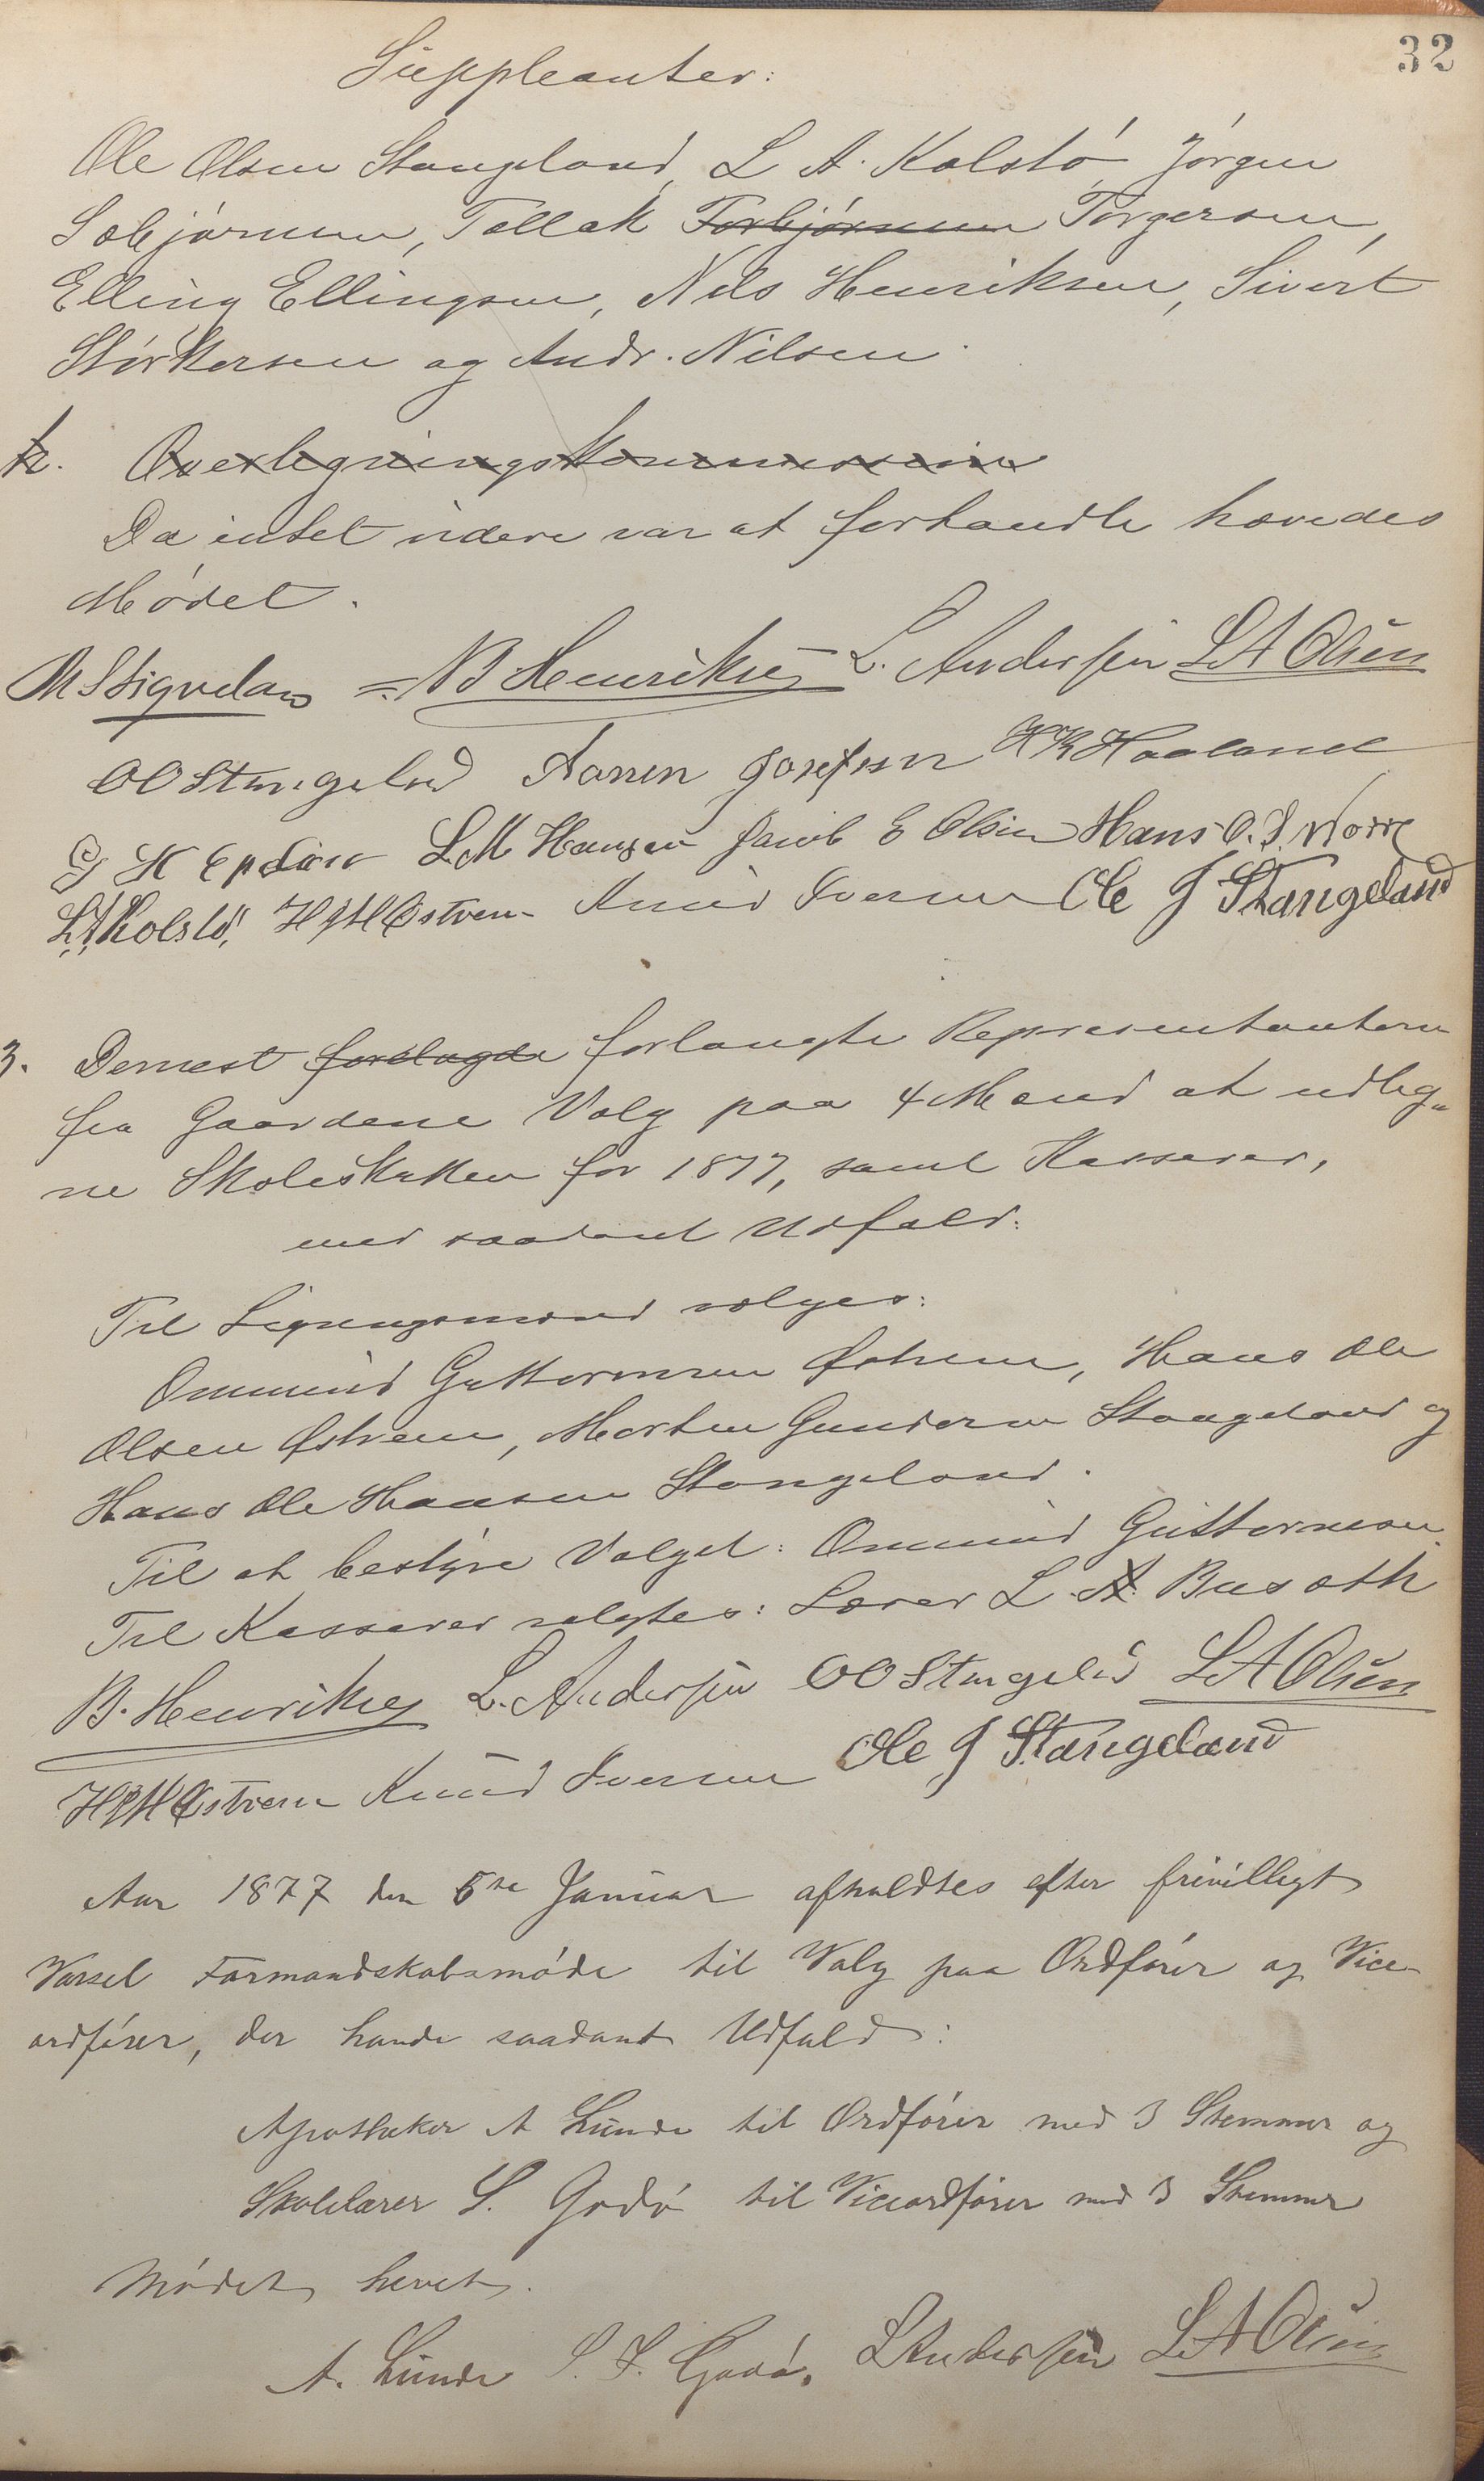 32
Suppleanter:
Ole Olsen Stangeland, L A. Kolstó, Jórgen
Sæbjórnsen, Tollak Torbjórnsen Torgersen,
Elling Ellingsen, Nils Henriksen, Sivert
Stórkersen og Andr. Nilsen.
k. Overligningskommissein
Da intet videre var at forhandle hævedes
Módet.
M Stigveland B Henriksen L. Andersen L A Olsen
OO Stangeland Aanen Josefsen H K Haaland
G K L M Hansen Jacob E Olsen Hans O. S. Norre
L. A. Kolstó, H M Østrem Knud Iversen Ole J Stangeland
3. Dernest forelagde forlangte Representanterne
fra Gaardene Valg paa 4 Mænd at udlig-
ne Skoleskatten for 1877, samt Kasserer,
med saadant Udfald:
Til Ligningsmænd valgtes:
Ommund Guttormsen Østrem, Hans Ole
Olsen Østrem, Morten Gundersen Stangeland og
Hans Ole Hansen Stangeland.
Til at bestyre Valget: Ommund Guttormsen.
Til Kasserer valgtes: Lærer L. A. Busoth
B. Henriksen L. Andersen OO Stangeland L A Olsen
H M Østrem Knud Iversen Ole J Stangeland
Aar 1877 den 5te Januar afholdtes efter frivilligt
Varsel Formandskabsmóde til Valg paa Ordfórer og Vice-
ordfórer, der havde saadant Udfald:
Apotheker A Lunde til Ordfórer med 3 Stemmer og
Skolelærer S. Godó til Viceordfórer med 3 Stemmer
Módet hevet.
A. Lunde S. J. Godó. L Andersen L A Olsen